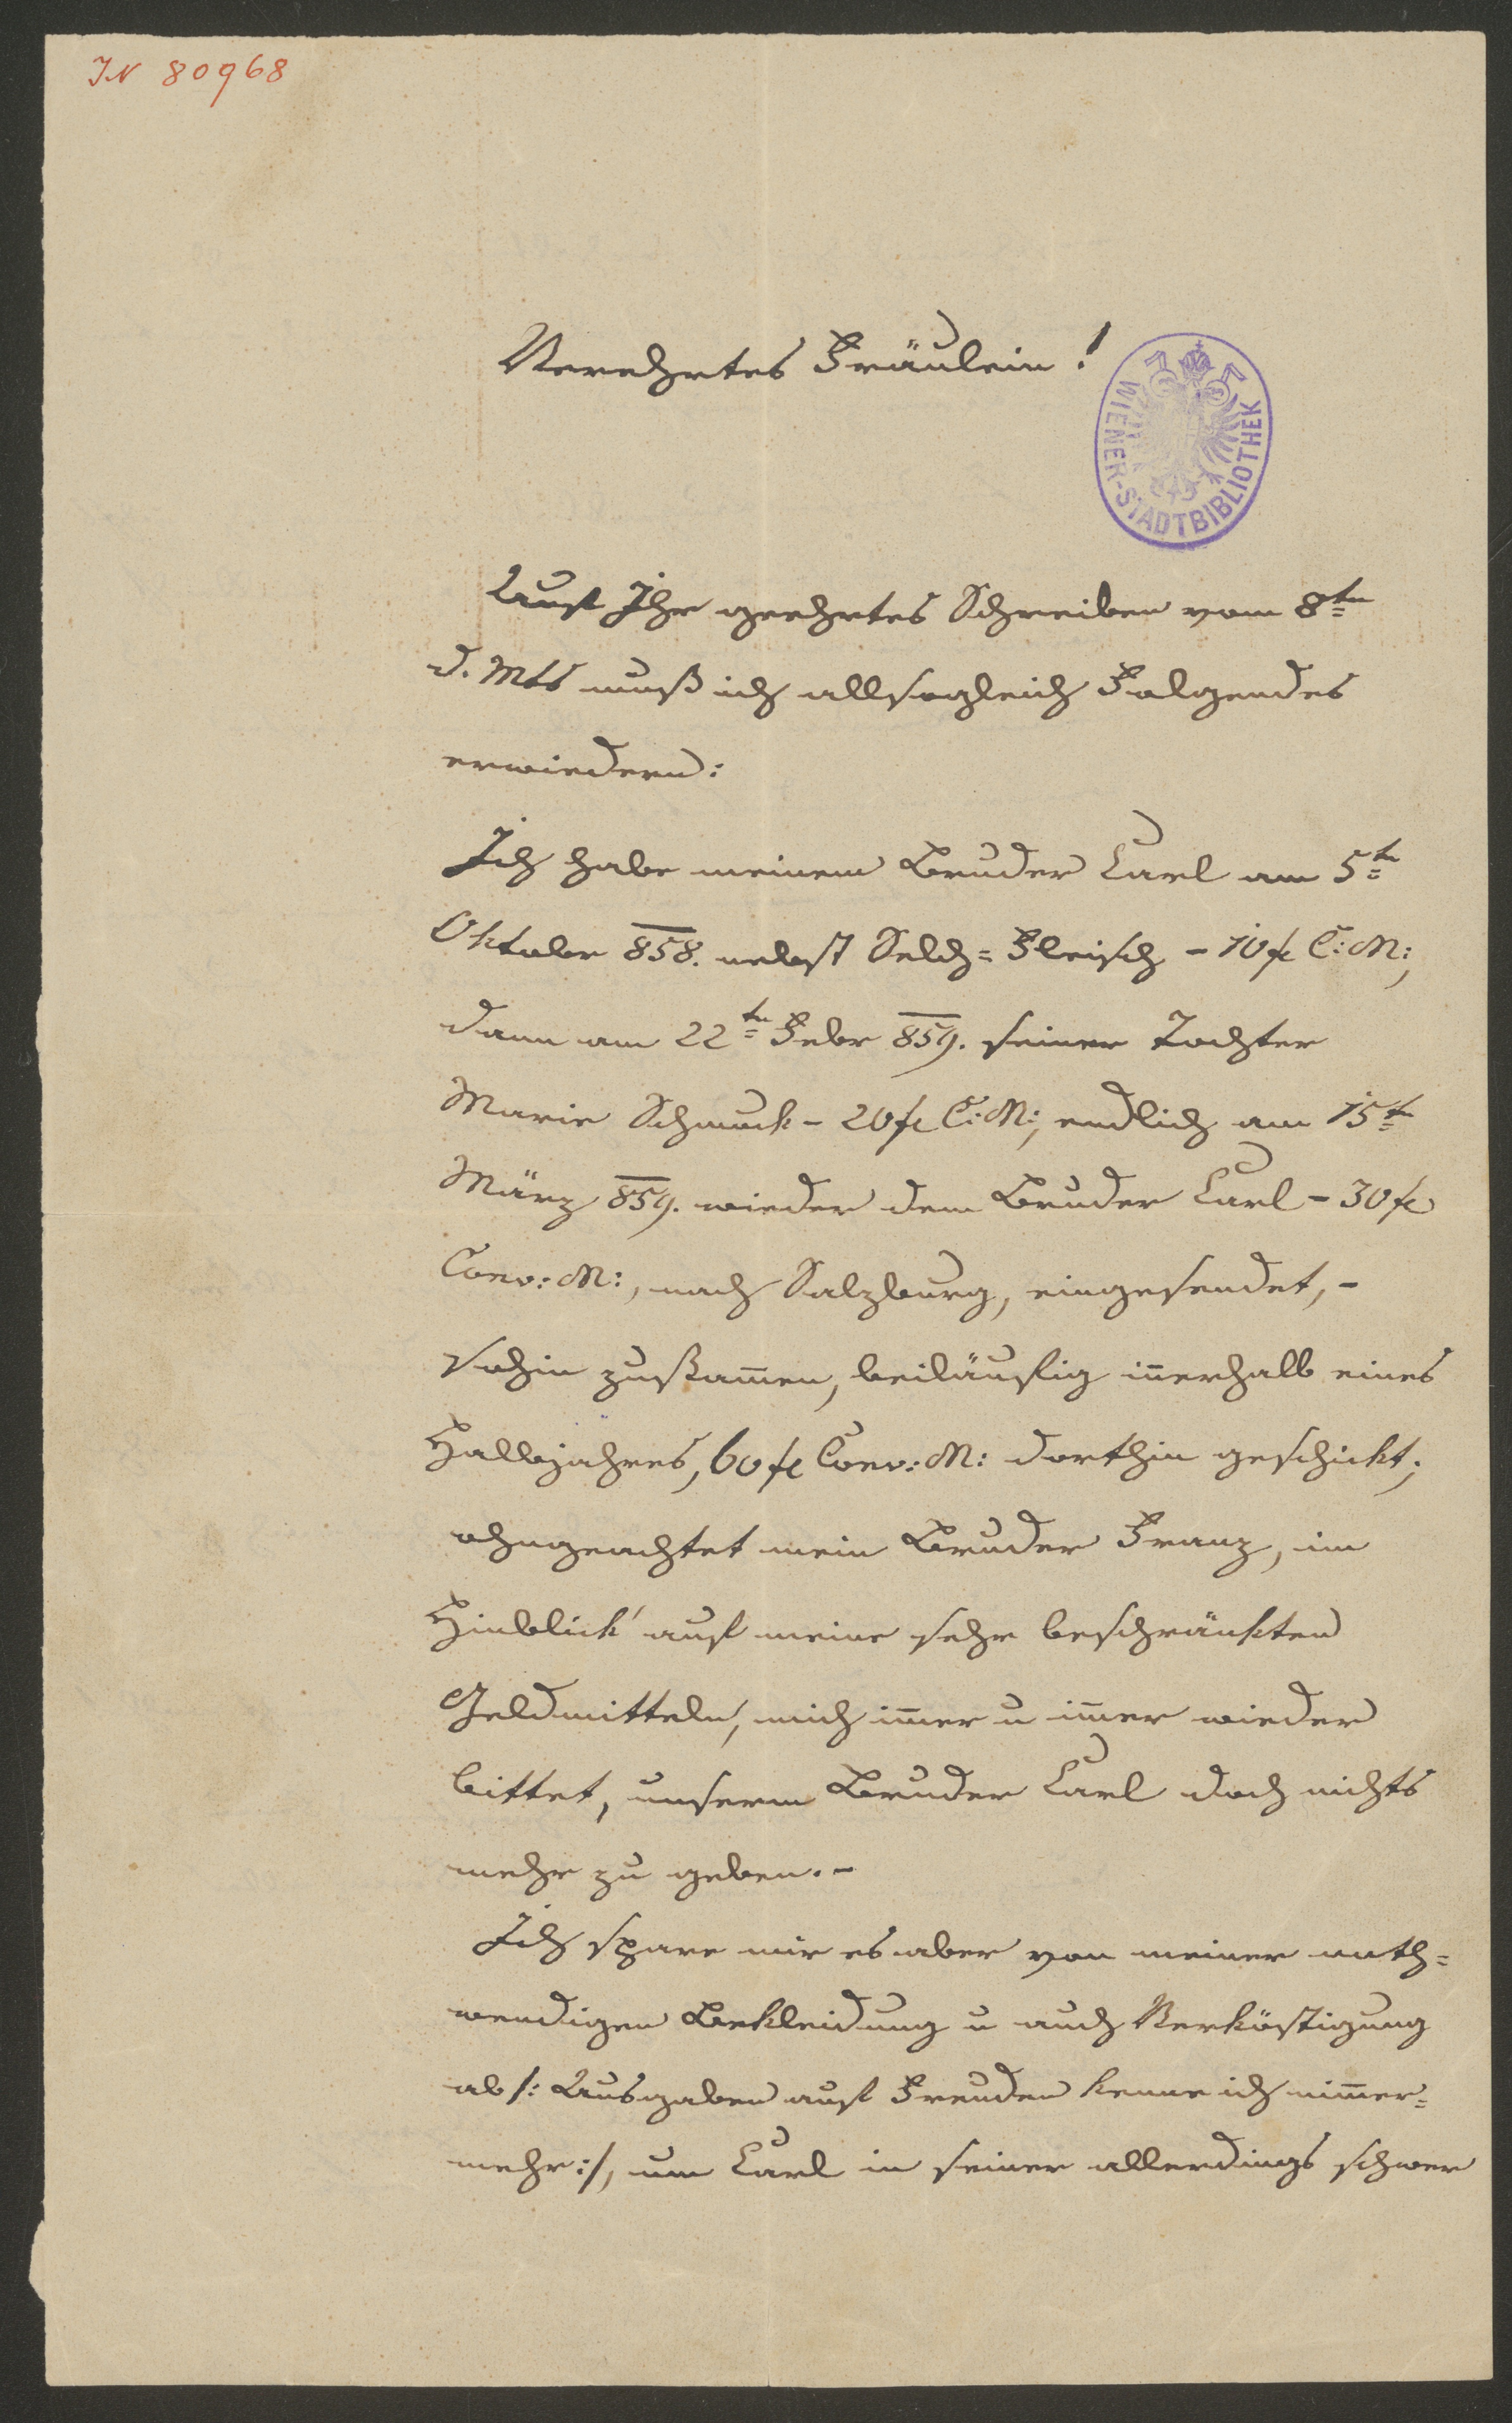 IN 80968
Verehrtes Fräulein!
WIENER-STADTBIBLIOTHEK
Auf Ihr geehrtes Schreiben vom 8ten
d. Mts muß ich allsogleich Folgendes
erwiedern:
Ich habe meinem Bruder Carl am 5ten
Oktober 858. nebst Selch=Fleisch - 10 fl C:M:,
dann am 22ten Febr 859. seiner Tochter
Marie Schmuck - 20 fl C:M:, endlich am 15ten
März 859. wieder dem Bruder Carl - 30 fl
Conv:M:, nach Salzburg, eingesendet, -
sohin zusam̄en, beiläufig in̄erhalb eines
Halbjahres, 60 fl Conv:M: dorthin geschickt;
ohngeachtet mein Bruder Franz, im
Hinblick auf meine sehr beschränkten
Geldmitteln, mich im̄er u im̄er wieder
bittet, unserm Bruder Carl doch nichts
mehr zu geben. -
Ich spare mir es aber von meiner noth=
wendigen Bekleidung u auch Verköstigung
ab /: Ausgaben auf Freuden kenne ich nim̄er=
mehr :/, um Carl in seiner allerdings schwer